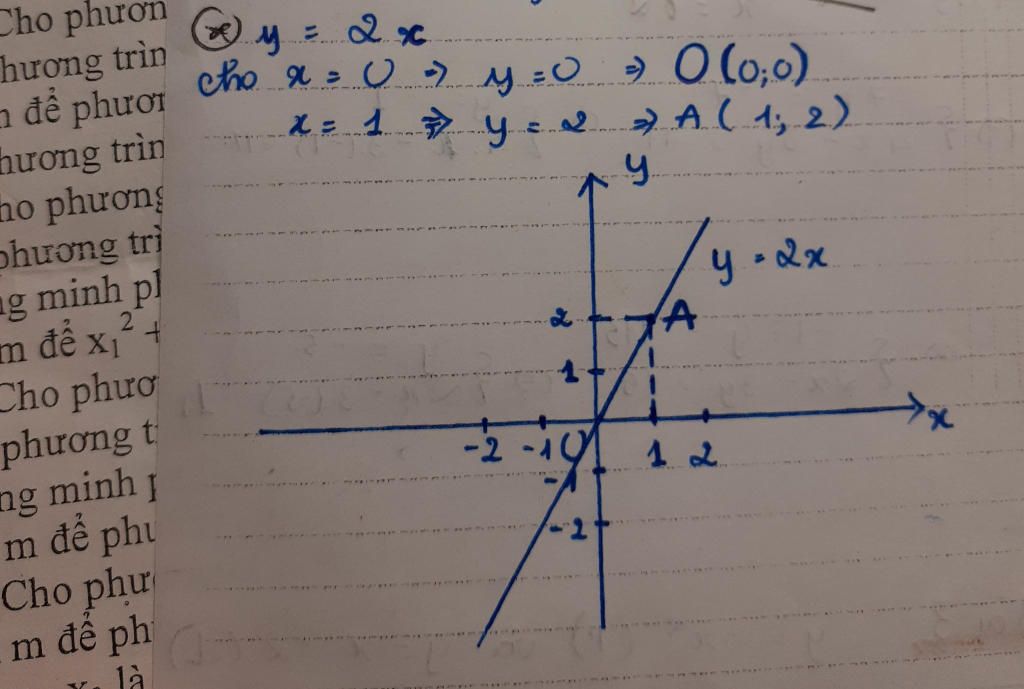 Cho phươn
hương trìn
m để phươn
hương trìn
ho phương
phương trì
ng minh ph
m để x₁² +
Cho phươ
phương t
ng minh p
m để phư
Cho phư
m để ph
là
(*) y = 2x
cho x = 0 => y = 0 => O(0;0)
x = 1 => y = 2 => A(1; 2)
y
y = 2x
2 A
1
x
-2 -1 O 1 2
-1
-2